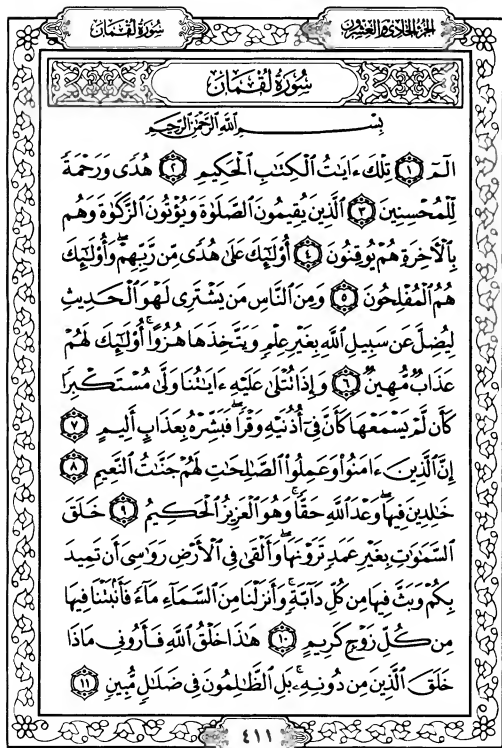 سُورَةُ لُقۡمَانَ
الجزء الحادي والعشرون
سُورَةُ لُقۡمَانَ
بِسۡمِ ٱللَّهِ ٱلرَّحۡمَٰنِ ٱلرَّحِيمِ
الٓمٓ ١ تِلۡكَ ءَايَٰتُ ٱلۡكِتَٰبِ ٱلۡحَكِيمِ ٢ هُدٗى وَرَحۡمَةٗ
لِّلۡمُحۡسِنِينَ ٣ ٱلَّذِينَ يُقِيمُونَ ٱلصَّلَوٰةَ وَيُؤۡتُونَ ٱلزَّكَوٰةَ وَهُم
بِٱلۡأٓخِرَةِ هُمۡ يُوقِنُونَ ٤ أُوْلَٰٓئِكَ عَلَىٰ هُدٗى مِّن رَّبِّهِمۡۖ وَأُوْلَٰٓئِكَ
هُمُ ٱلۡمُفۡلِحُونَ ٥ وَمِنَ ٱلنَّاسِ مَن يَشۡتَرِي لَهۡوَ ٱلۡحَدِيثِ
لِيُضِلَّ عَن سَبِيلِ ٱللَّهِ بِغَيۡرِ عِلۡمٖ وَيَتَّخِذَهَا هُزُوًاۚ أُوْلَٰٓئِكَ لَهُمۡ
عَذَابٞ مُّهِينٞ ٦ وَإِذَا تُتۡلَىٰ عَلَيۡهِ ءَايَٰتُنَا وَلَّىٰ مُسۡتَكۡبِرٗا
كَأَن لَّمۡ يَسۡمَعۡهَا كَأَنَّ فِيٓ أُذُنَيۡهِ وَقۡرٗاۖ فَبَشِّرۡهُ بِعَذَابٍ أَلِيمٍ ٧
إِنَّ ٱلَّذِينَ ءَامَنُواْ وَعَمِلُواْ ٱلصَّٰلِحَٰتِ لَهُمۡ جَنَّٰتُ ٱلنَّعِيمِ ٨
خَٰلِدِينَ فِيهَاۖ وَعۡدَ ٱللَّهِ حَقّٗاۚ وَهُوَ ٱلۡعَزِيزُ ٱلۡحَكِيمُ ٩ خَلَقَ
ٱلسَّمَٰوَٰتِ بِغَيۡرِ عَمَدٖ تَرَوۡنَهَاۖ وَأَلۡقَىٰ فِي ٱلۡأَرۡضِ رَوَٰسِيَ أَن تَمِيدَ
بِكُمۡ وَبَثَّ فِيهَا مِن كُلِّ دَآبَّةٖۚ وَأَنزَلۡنَا مِنَ ٱلسَّمَآءِ مَآءٗ فَأَنۢبَتۡنَا فِيهَا
مِن كُلِّ زَوۡجٖ كَرِيمٍ ١٠ هَٰذَا خَلۡقُ ٱللَّهِ فَأَرُونِي مَاذَا
خَلَقَ ٱلَّذِينَ مِن دُونِهِۦۚ بَلِ ٱلظَّٰلِمُونَ فِي ضَلَٰلٖ مُّبِينٖ ١١
٤١١